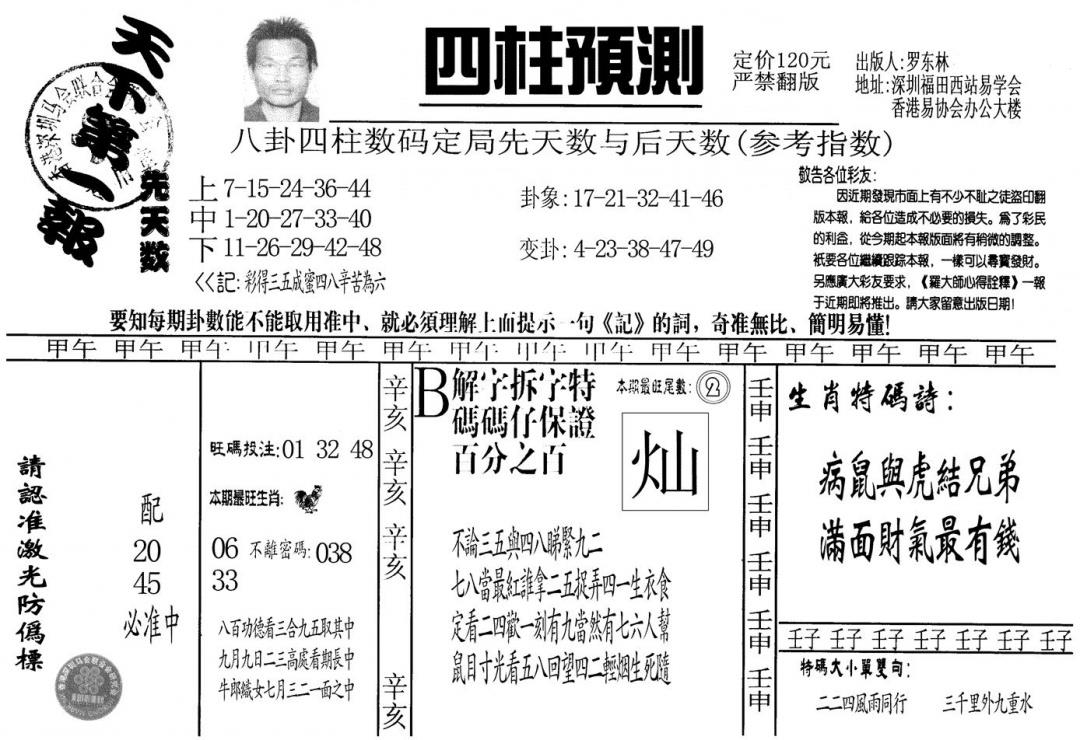 天下第一報
四柱預測
定价120元
严禁翻版
出版人:罗东林
地址:深圳福田西站易学会
香港易协会办公大楼
八卦四柱数码定局先天数与后天数(参考指数)
先天数
上7-15-24-36-44
中1-20-27-33-40
下11-26-29-42-48
<<記:彩得三五成蜜四八辛苦為六
卦象:17-21-32-41-46
变卦:4-23-38-47-49
敬告各位彩友:
因近期發現市面上有不少不耻之徒盜印翻
版本報,給各位造成不必要的損失。為了彩民
的利益,從今期起本報版面將有稍微的調整。
衹要各位繼續跟踪本報,一樣可以尋寶發財。
另應廣大彩友要求,《羅大師心得詮釋》一報
于近期即將推出。請大家留意出版日期!
要知每期卦數能不能取用准中、就必須理解上面提示一句《記》的詞,奇准無比、簡明易懂!
甲午 甲午 甲午 甲午 甲午 甲午 甲午 甲午 甲午 甲午 甲午 甲午 甲午 甲午 甲午
請認准激光防僞標
配
20
45
必准中
旺碼投注:01 32 48
本期最旺生肖:
06 不離密碼:038
33
八百功德看三合九五取其中
九月九日二三高處看期長中
牛郎織女七月三二一面之中
辛亥 辛亥 辛亥 辛亥
B解字拆字特
碼碼仔保證
百分之百
本期最旺尾數:2
灿
不論三五與四八睇緊九二
七八當最紅誰拿二五捉弄四一生衣食
定看二四歡一刻有九當然有七六人幫
鼠目寸光看五八回望四二輕烟生死隨
壬申 壬申 壬申 壬申 壬申 壬申
生肖特碼詩:
病鼠與虎結兄弟
滿面財氣最有錢
壬子 壬子 壬子 壬子 壬子 壬子 壬子
特碼大小單雙句:
二二四風雨同行 三千里外九重水